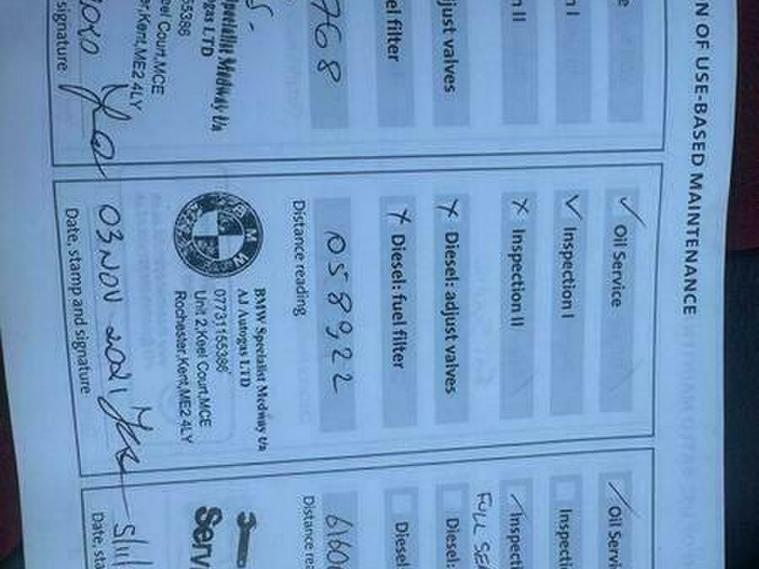 N OF USE-BASED MAINTENANCE
e
n I
n II
just valves
el filter
768
Specialist Medway t/a
ogas LTD
55386
eel Court,MCE
r,Kent,ME2 4LY
signature
✓ Oil Service
✓ Inspection I
X Inspection II
X Diesel: adjust valves
X Diesel: fuel filter
058922
Distance reading
BMW
BMW Specialist Medway t/a
AJ Autogas LTD
07731155386
Unit 2,Keel Court,MCE
Rochester,Kent,ME2 4LY
03 NOV 2021
Date, stamp and signature
Oil Servi
Inspecti
Inspecti
FULL SE
Diesel:
Diesel
6160
Distance rea
Serv
5/11/
Date, sta